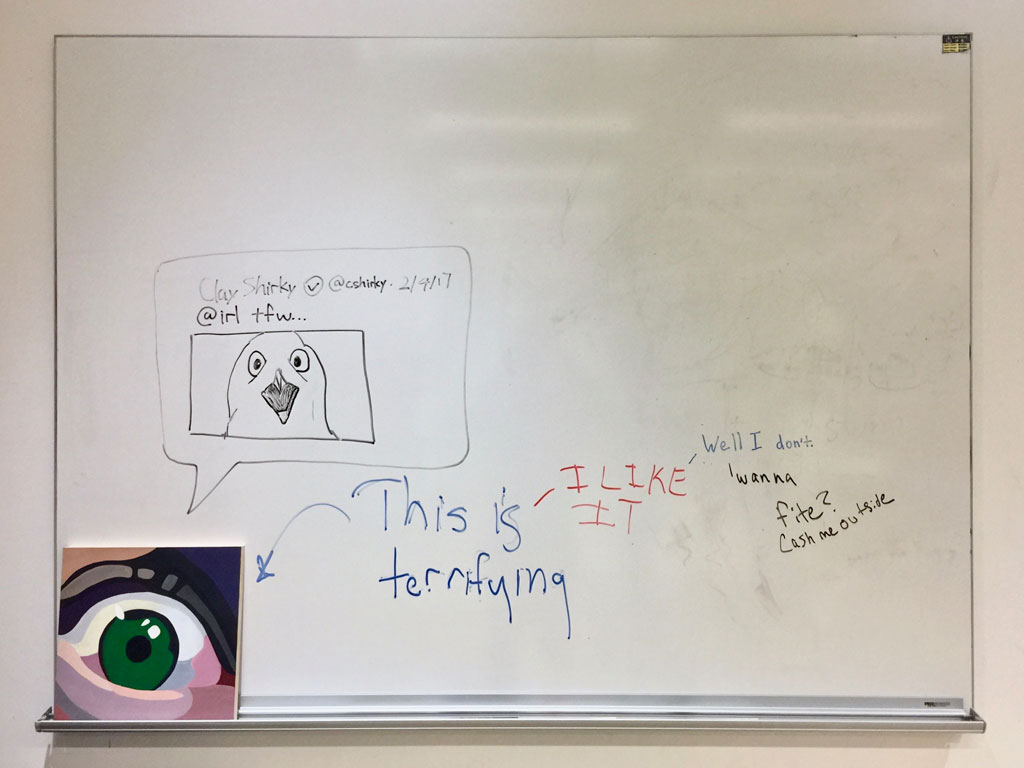 Clay Shirky @cshirky. 2/4/17
@irl tfw...
This is
terrifying
I LIKE
IT
Well I don't
wanna
fite?
Cash me outside